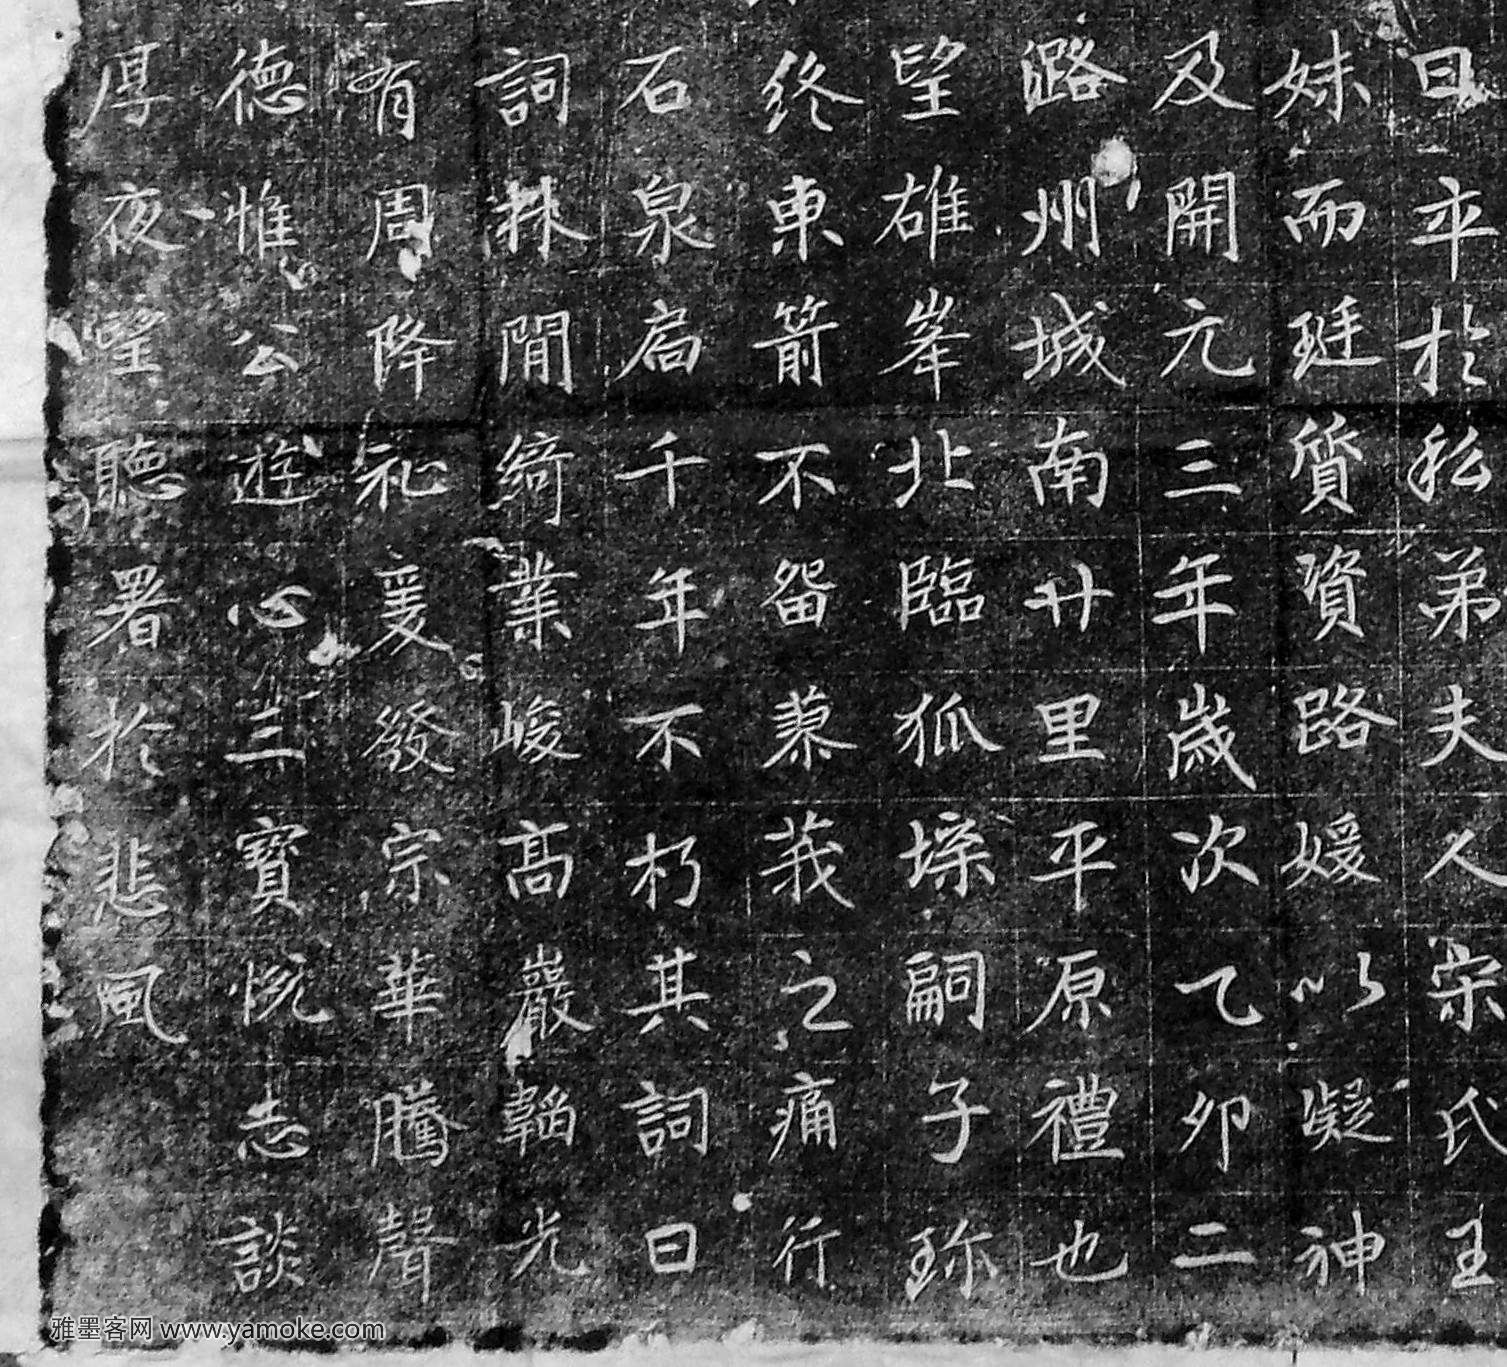 日卒於私弟夫人宋氏王
妹而珽質資路媛以凝神
及開元三年歲次乙卯二
潞州城南廿里平原禮也
望雄峯北臨狐堔嗣子珎
終東箭不留蓼莪之痛行
石泉扃千年不朽其詞曰
詞林閒綺業峻高巖韜光
有周降祉爰發宗華騰聲
德惟公遊心三寶恱志談
厚夜聽署於悲風
雅墨客网 www.yamoke.com